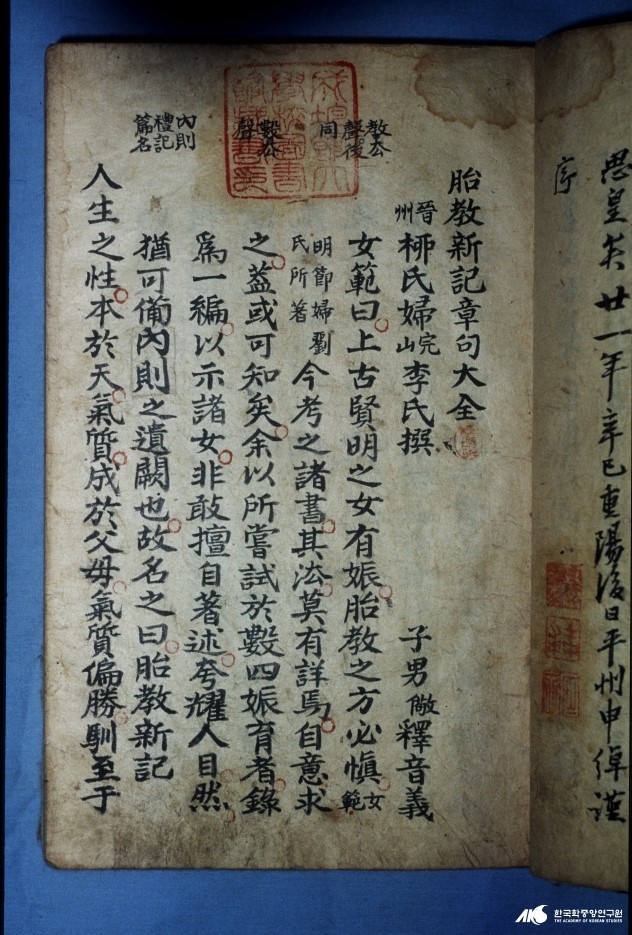 廿一年辛巳重陽後日平州申綽謹
序
教去
聲後
同
數去
聲
內則
禮記
篇名
胎教新記章句大全
晉州柳氏婦完山李氏撰 子男儆釋音義
女範曰上古賢明之女有娠胎教之方必愼女範
明節婦劉氏所著今考之諸書其法莫有詳焉自意求
之蓋或可知矣余以所嘗試於數四娠育者錄
爲一編以示諸女非敢擅自著述夸耀人目然
猶可備內則之遺闕也故名之曰胎教新記
人生之性本於天氣質成於父母氣質偏勝馴至于
한국학중앙연구원
THE ACADEMY OF KOREAN STUDIES